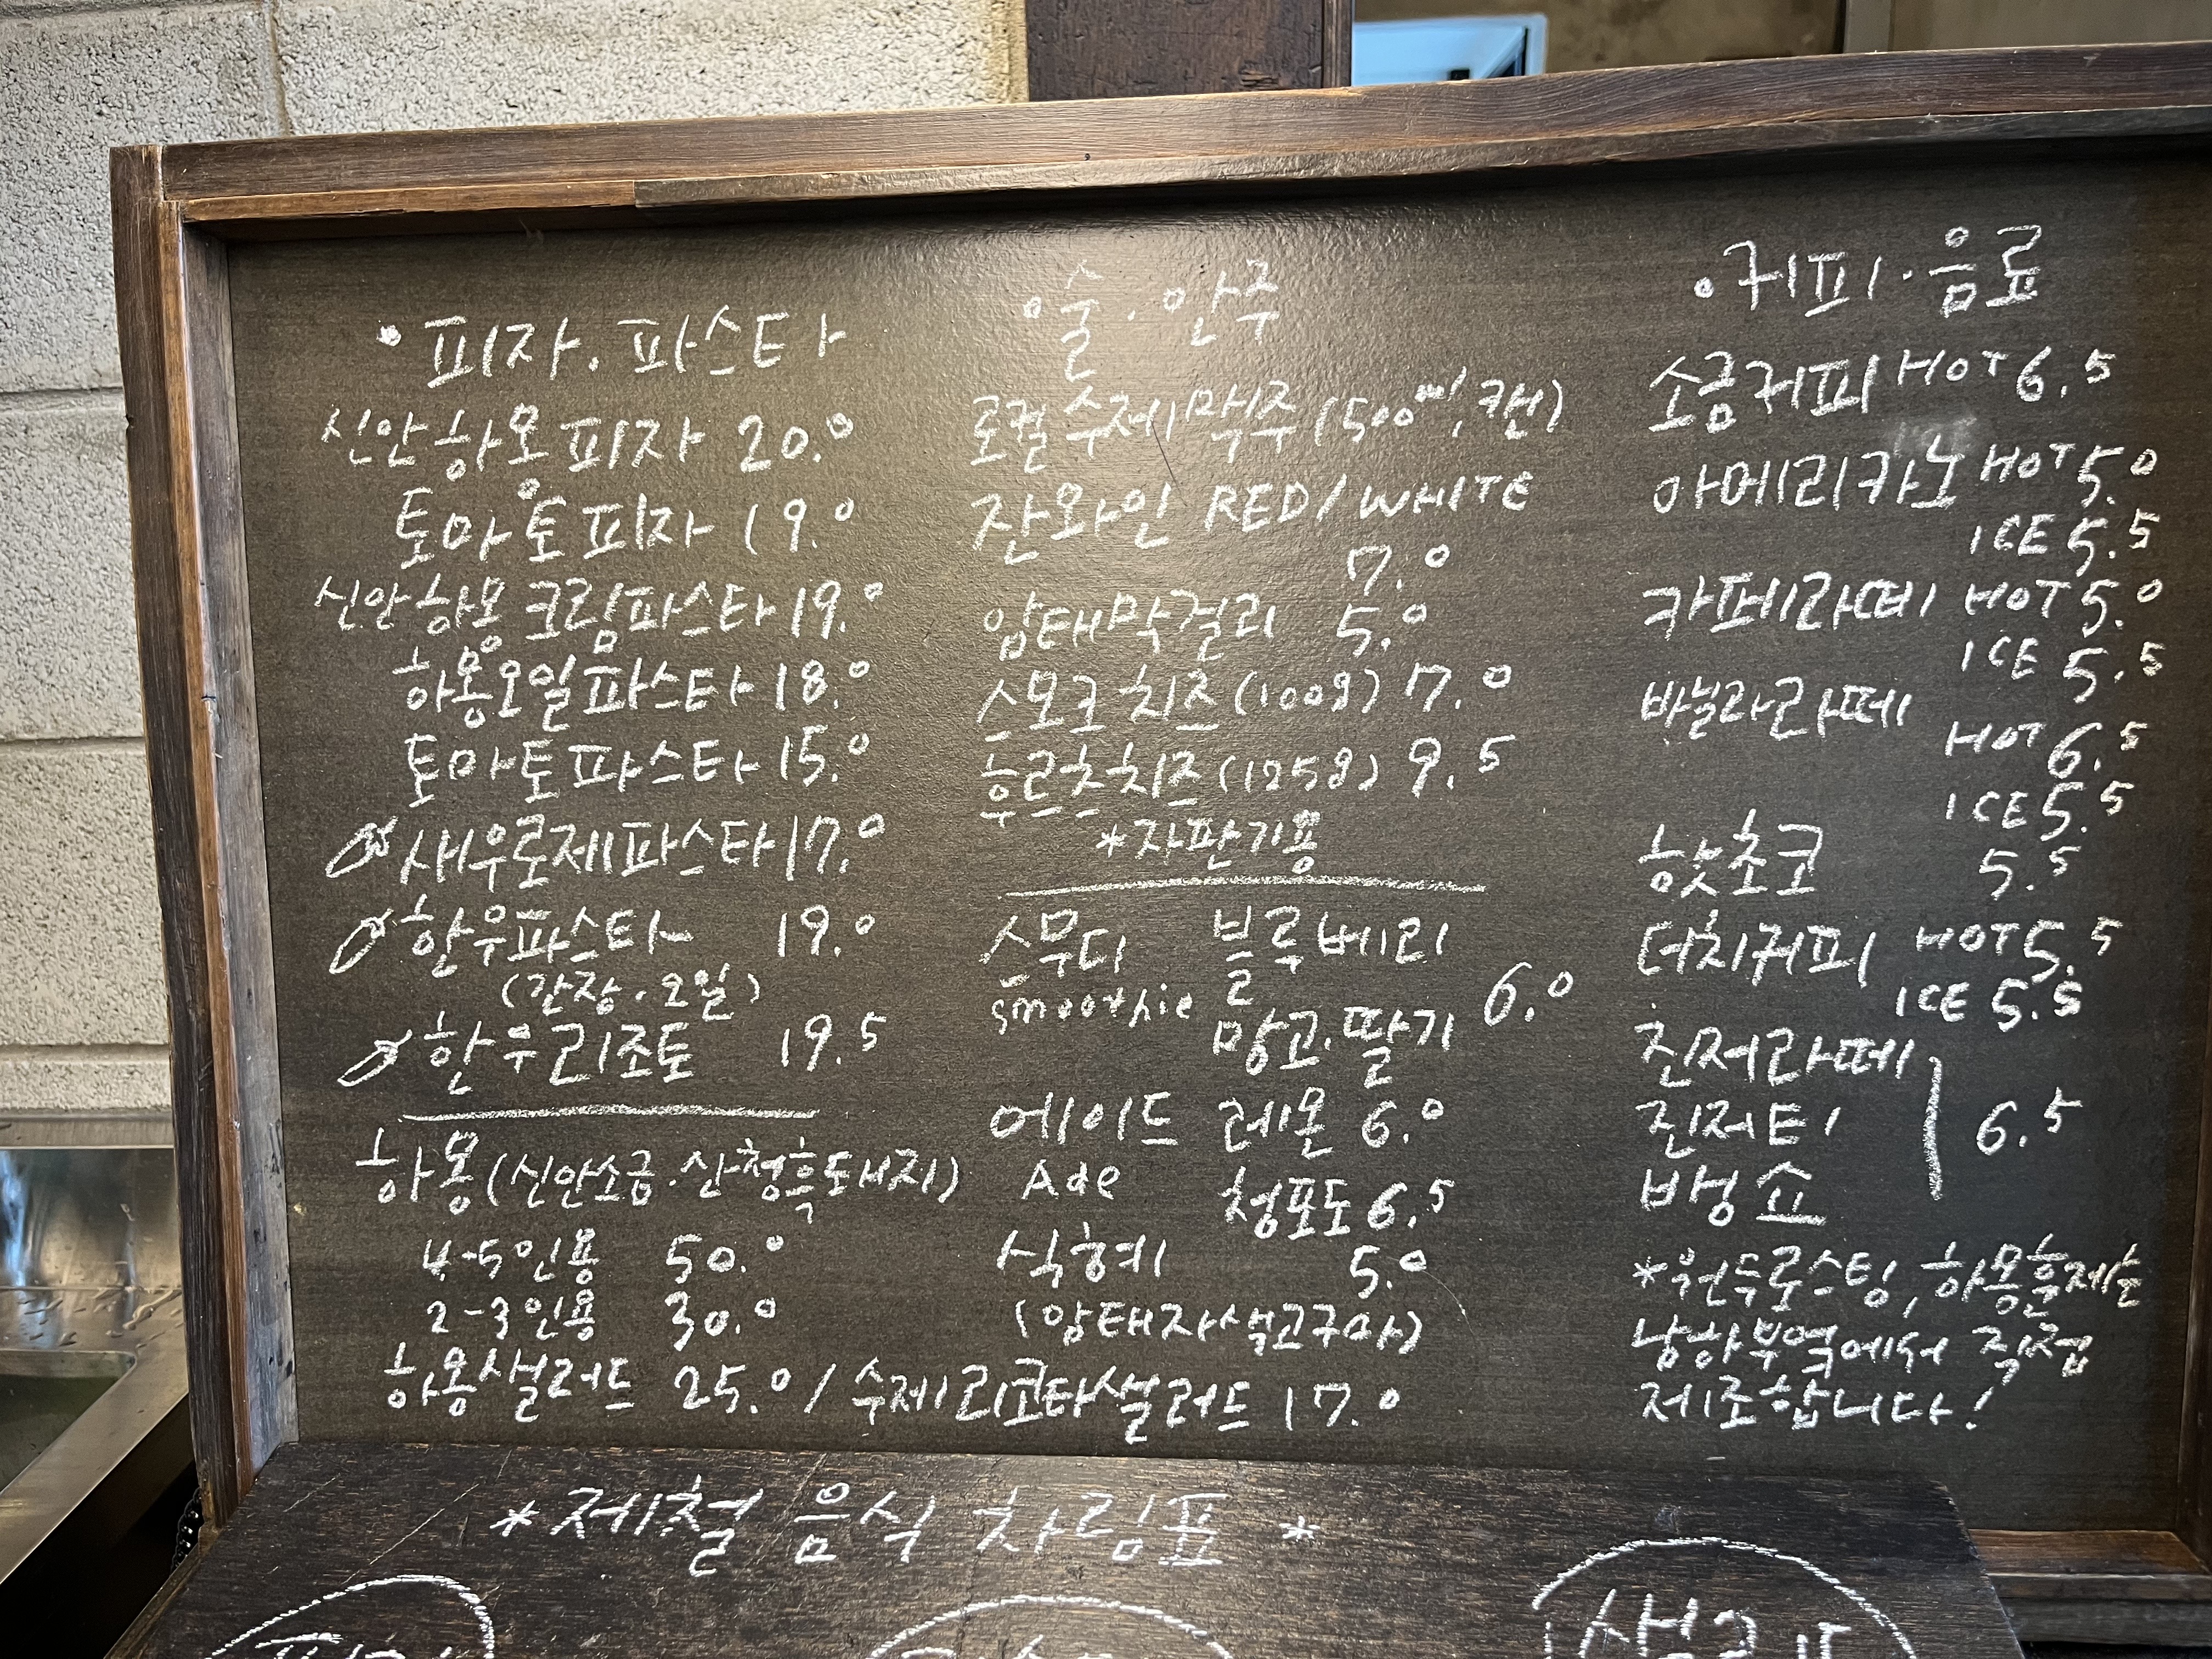 • 피자 . 파스타
신안하몽피자 20.0
토마토피자 19.0
신안하몽크림파스타 19.0
하몽오일파스타 18.0
토마토파스타 15.0
새우로제파스타 17.0
한우파스타 19.0
(간장.오일)
한우리조토 19.5
하몽(신안소금.산청흑돼지)
4-5인용 50.0
2-3인용 30.0
하몽샐러드 25.0 / 수제리코타샐러드 17.0
• 술 . 안주
로컬수제맥주 (500ml, 캔)
잔와인 RED/WHITE
7.0
암태막걸리 5.0
스모크치즈 (100g) 7.0
후르츠치즈 (125g) 9.5
*자판기용
스무디 블루베리
smoothie 망고.딸기 6.0
에이드 레몬 6.0
Ade 청포도 6.5
식혜 5.0
(암태자색고구마)
• 커피 . 음료
소금커피 HOT 6.5
아메리카노 HOT 5.0
ICE 5.5
카페라떼 HOT 5.0
ICE 5.5
바닐라라떼
HOT 6.5
ICE 5.5
핫초코 5.5
더치커피 HOT 5.5
ICE 5.5
진저라떼
진저티 6.5
뱅쇼
*원두로스팅, 하몽훈제는
남하부엌에서 직접
제조합니다!
*제철 음식 차림표*